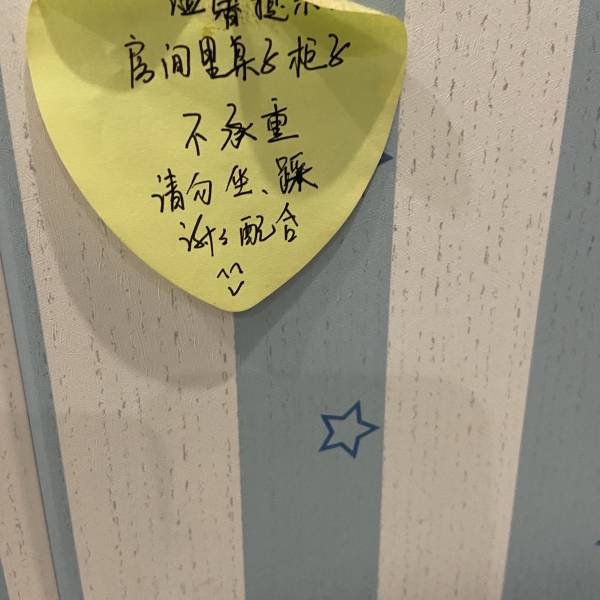 温馨提示
房间里桌子柜子
不承重
请勿坐、踩
谢谢配合